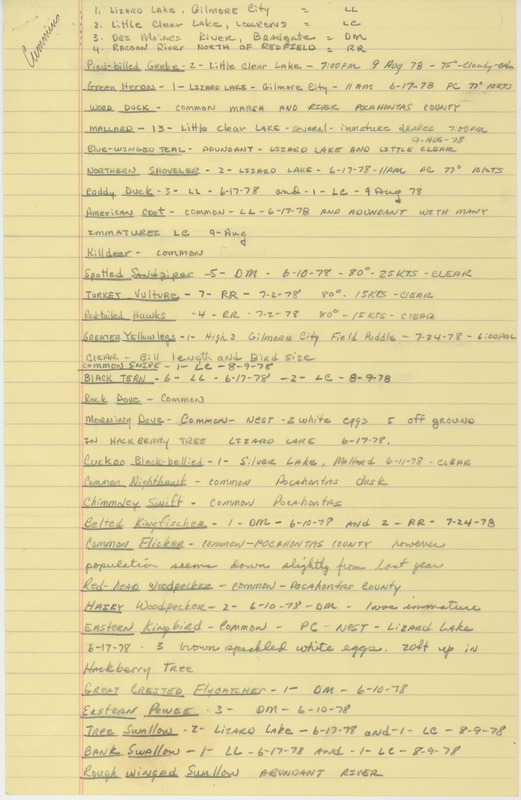 Cummins
1. Lizard Lake, Gilmore City = LL
2. Little Clear Lake, Lourens = LC
3. Des Moines River, Bradgate = DM
4. Racoon River North of Redfield = RR
Pied-billed Grebe - 2 - Little Clear Lake - 7:00PM 9 Aug 78 - 75° - Cloudy - Calm
Green Heron - 1 - Lizard Lake - Gilmore City - 11AM 6-17-78 PC 77° 10KTS
Wood Duck - common marsh and river Pocahontas County
Mallard - 13 - Little Clear Lake - several - immature drakes 7:00PM
9-Aug-78
Blue-winged Teal - Abundant - Lizard Lake and Little Clear
Northern Shoveler - 2 - Lizard Lake - 6-17-78 - 11AM PC 77° 10KTS
Ruddy Duck - 3 - LL - 6-17-78 and - 1 - LC - 9 Aug 78
American Coot - common - LL - 6-17-78 and abundant with many
immatures LC 9-Aug
Killdeer - common
Spotted Sandpiper - 5 - DM - 6-10-78 - 80° - 25KTS - Clear
Turkey Vulture - 7 - RR - 7-2-78 80° - 15KTS - Clear
Red-tailed Hawks - 4 - RR - 7-2-78 80° - 15KTS - Clear
Greater Yellowlegs - 1 - High 2 Gilmore City Field Puddle - 7-24-78 - 6:00PM
Clear - Bill length and Bird size
Common Snipe - 1 - LC - 8-9-78
Black Tern - 6 - LL - 6-17-78 - 2 - LC - 8-9-78
Rock Dove - Common
Morning Dove - Common - Nest - 2 white eggs 5 off ground
in Hackberry Tree Lizard Lake 6-17-78.
Cuckoo Black-bellied - 1 - Silver Lake, Mallard 6-11-78 - Clear
Common Nighthawk - common Pocahontas dusk
Chimney Swift - common Pocahontas
Belted Kingfischer - 1 - DM - 6-10-78 and 2 - RR - 7-24-78
Common Flicker - common - Pocahontas County however
population seems down slightly from last year
Red-head Woodpecker - common - Pocahontas County
Hairy Woodpecker - 2 - 6-10-78 - DM - 1 was immature
Eastern Kingbird - Common - PC - Nest - Lizard Lake
6-17-78 - 3 brown speckled white eggs. 20ft up in
Hackberry Tree.
Great Crested Flycatcher - 1 - DM - 6-10-78
Eastern Pewee - 3 - DM - 6-10-78
Tree Swallow - 2 - Lizard Lake - 6-17-78 and - 1 - LC - 8-9-78
Bank Swallow - 1 - LL - 6-17-78 and - 1 - LC - 8-9-78
Rough Winged Swallow Abundant River